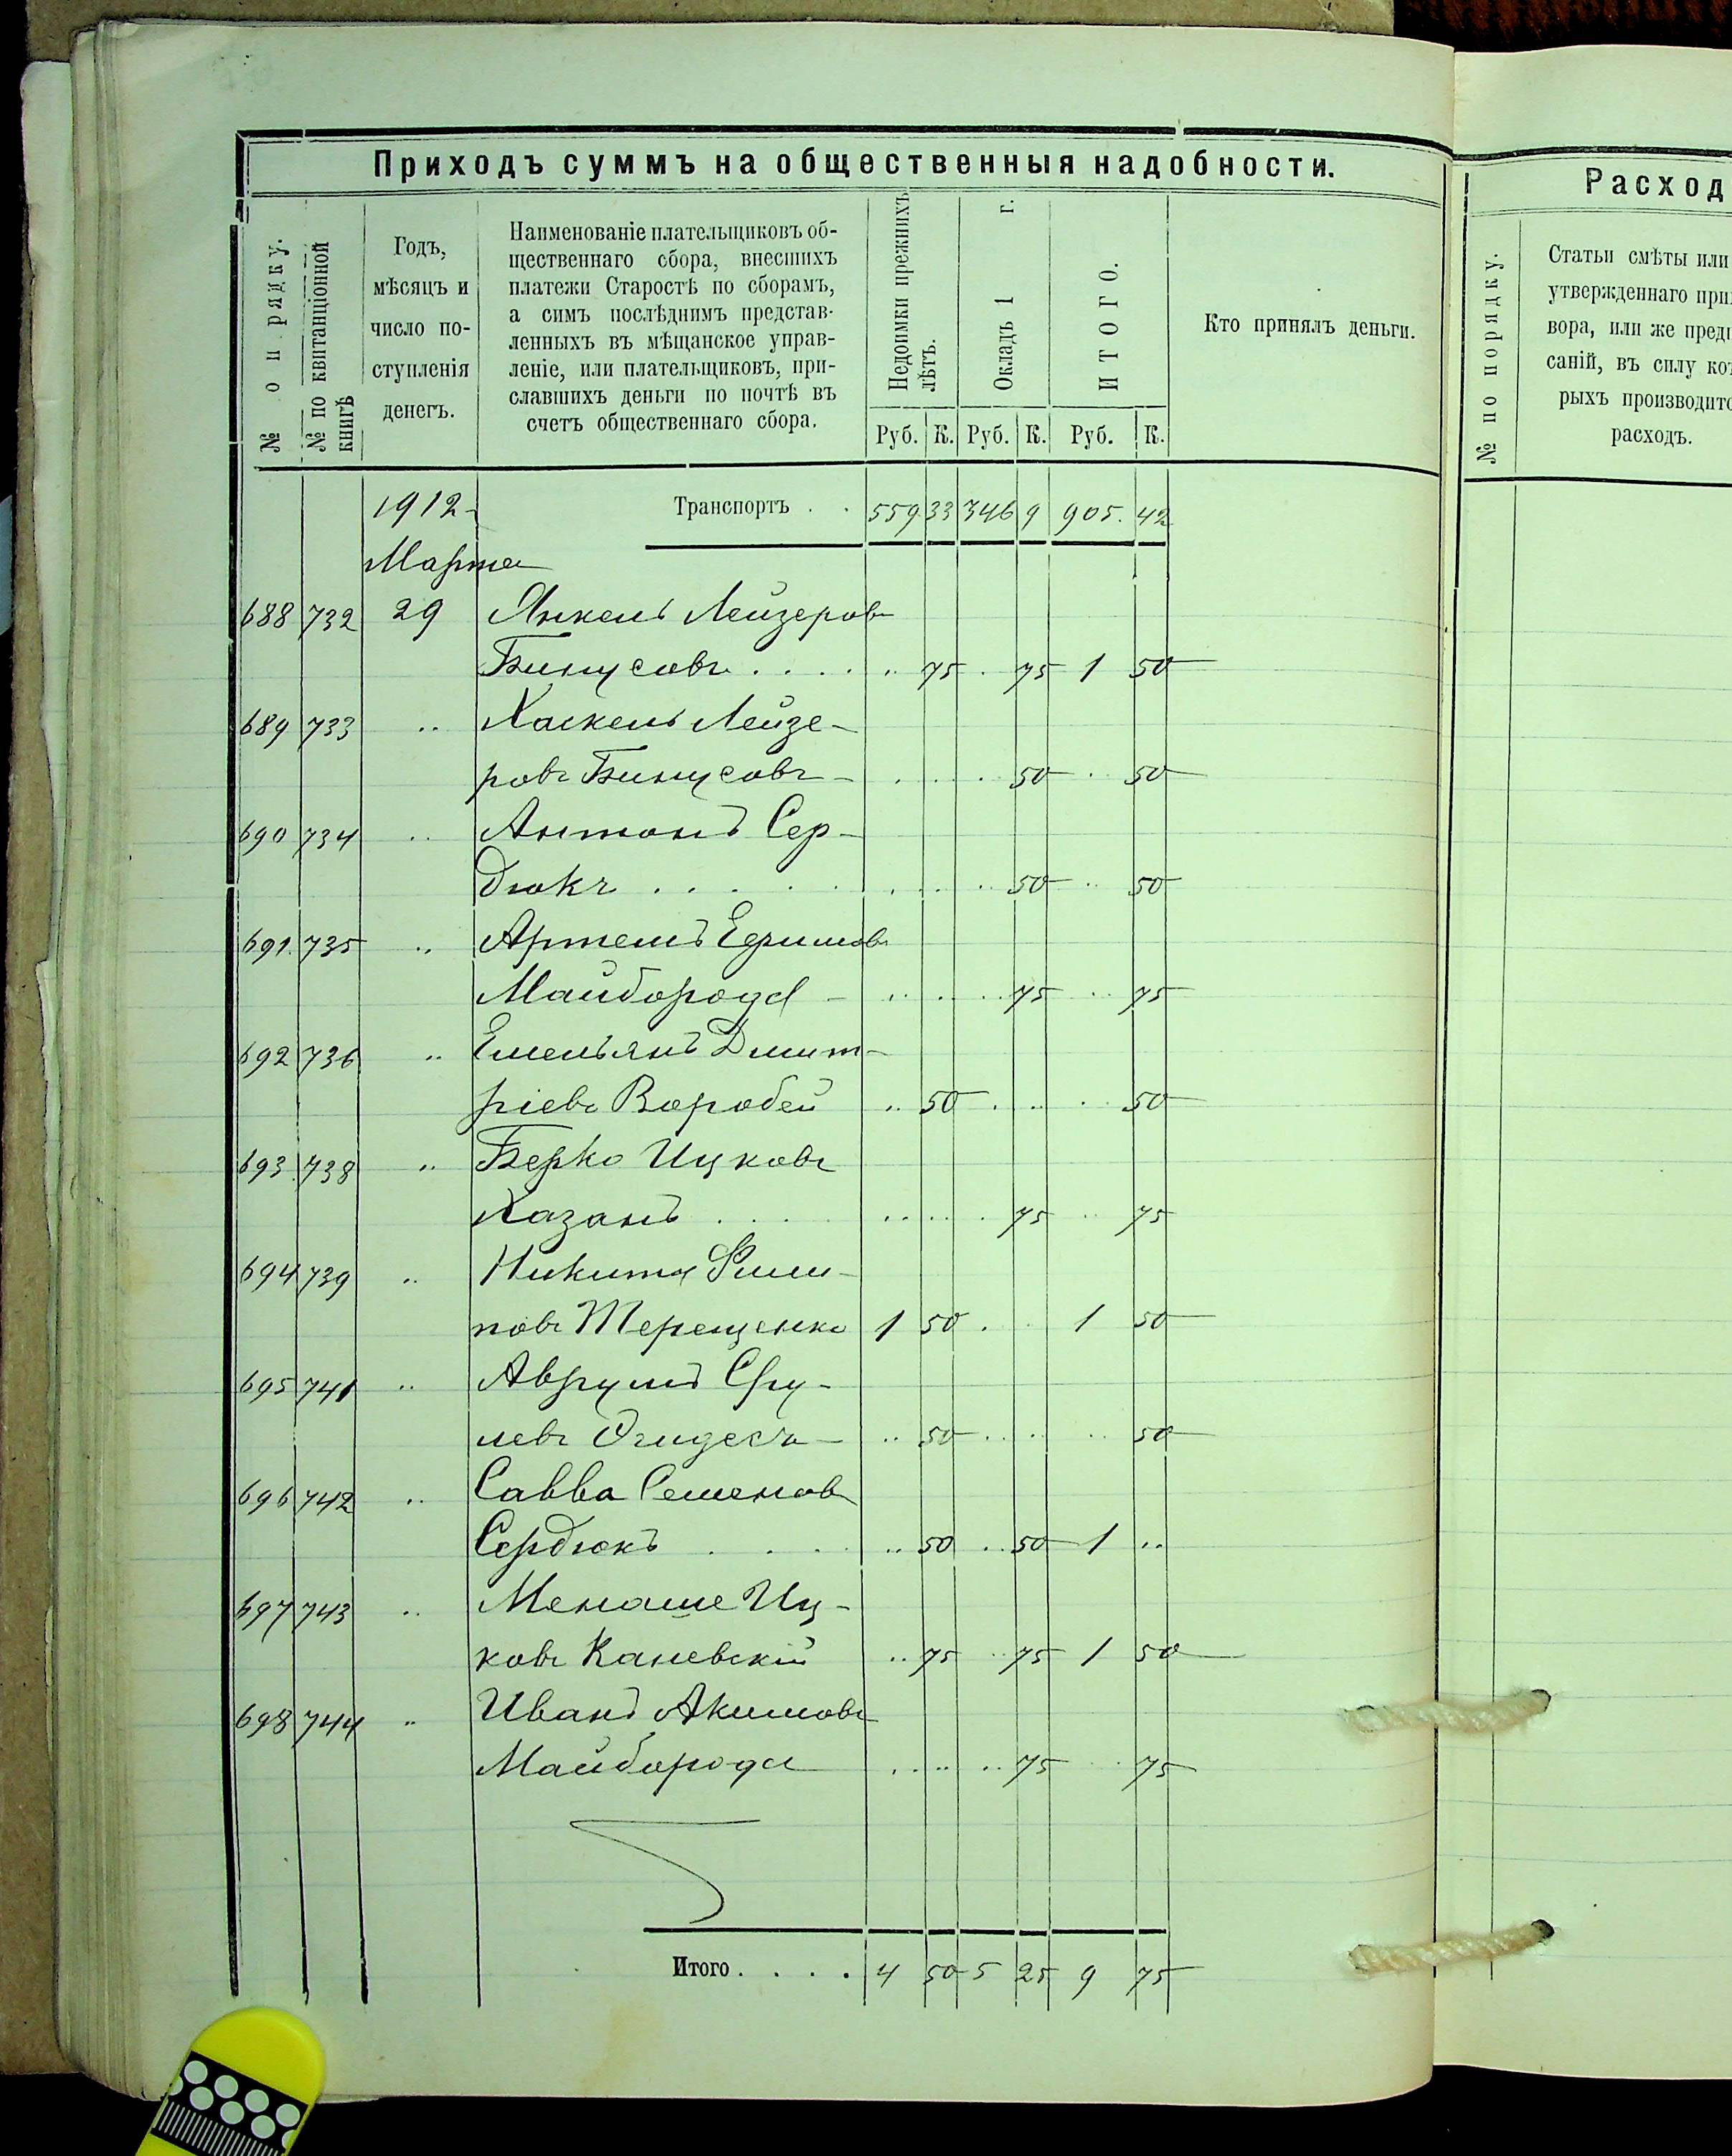 Приходъ суммъ на общественныя надобности.
№ по рядку.
№ по квитанціонной книгѣ
Годъ, мѣсяцъ и число поступленія денегъ.
Наименованіе плательщиковъ об-
щественнаго сбора, внесшихъ
платежи Старостѣ по сборамъ,
а симъ послѣднимъ представ-
ленныхъ въ мѣщанское управ-
леніе, или плательщиковъ, при-
славшихъ деньги по почтѣ въ
счетъ общественнаго сбора.
Недоимки прежнихъ лѣтъ.
Окладъ 1 г.
ИТОГО.
Руб. К. Руб. К. Руб. К.
Кто принялъ деньги.
1912 Транспортъ . . 559 33 346 9 905. 42
Марта
688 732 29 Янкель Лейзеровъ
Бинусовъ . . . . 75 75 1 50
689 733 " Хаскель Лейзе-
ровъ Бинусовъ - 50 50
690 734 " Антонъ Сер-
дюкъ . . . . 50 50
691. 735 " Артемъ Ефимовъ
Майборода - 75 75
692 736 " Емельянъ Дмит-
ріевъ Воробей 50 50
693. 738 " Берко Ицковъ
Хазанъ . . . 75 75
694 739 " Никита Фили-
повъ Терещенко 1 50 1 50
695 741 " Аврумъ Сру-
левъ - 50 50
696 742 " Савва Семенов
Сердюкъ . . . 50 50 1 "
697 743 " Менаше Иц-
ковъ Каневскій 75 75 1 50
698 744 " Иванъ Акимовъ
Майборода 75 75
Итого . . . . 4 50 5 25 9 75
Расход
№ по порядку.
Статьи смѣты или
утвержденнаго при
вора, или же пред
саній, въ силу ко
рыхъ производит
расходъ.